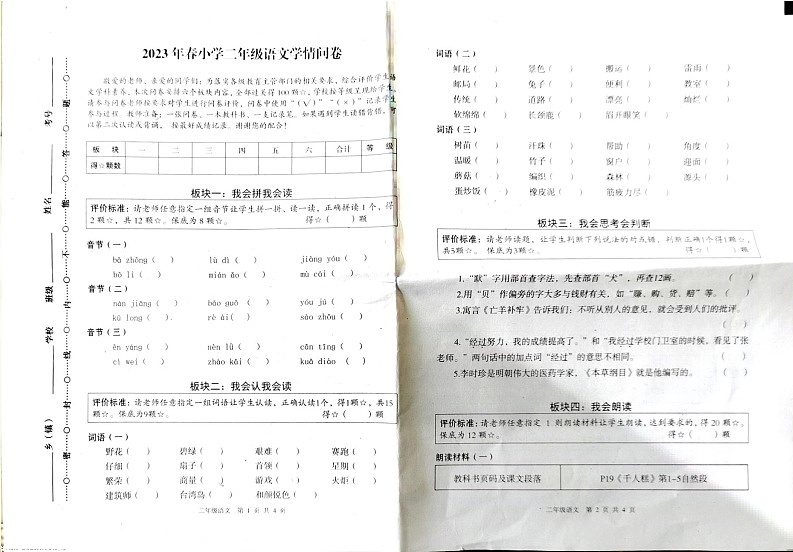 2023年春小学二年级语文学情问卷
敬爱的老师、亲爱的同学们：为落实各级教育主管部门的相关要求，综合评价学生语
文学科素养，本次问卷安排六个板块内容，全部过关得100颗☆，学校按等级呈现给学生。
请参与问卷老师按要求对学生进行问卷评价，问卷中使用“（√）”“（×）”记录学生
参与过程。教师准备：一张问卷、一本教科书、一支记录笔。如果遇到学生读错背错，可
以第二次认读或背诵，按最好成绩记录。谢谢您的配合！
板块 一 二 三 四 五 六 合计 等级
得☆颗数
板块一：我会拼我会读
评价标准：请老师任意指定一组音节让学生拼一拼、读一读，正确拼读1个，得
2颗☆，共12颗☆。保底为8颗☆。 得☆（ ）颗
音节（一）
bǎ zhǒng（ ） lù dì（ ） jiāng yóu（ ）
bō li（ ） mián ǎo（ ） mù cái（ ）
音节（二）
nán jiāng（ ） bào guǒ（ ） yóu jú（ ）
kǔ lóng（ ） rè ài（ ） sào zhou（ ）
音节（三）
ēn yáng（ ） nèn lǜ（ ） cān tīng（ ）
cì wei（ ） zhào kāi（ ） kuā diào（ ）
板块二：我会认我会读
评价标准：请老师任意指定一组词语让学生认读，正确认读1个，得1颗☆，共15
颗☆。保底为9颗☆。 得☆（ ）颗
词语（一）
野花（ ） 碧绿（ ） 艰难（ ） 赛跑（ ）
仔细（ ） 扇子（ ） 首领（ ） 星期（ ）
繁荣（ ） 商量（ ） 游戏（ ） 火炬（ ）
建筑师（ ） 台湾岛（ ） 和颜悦色（ ）
二年级语文 第1页共4页
乡（镇） 学校 班级 姓名 考号
密 封 线 内 不 能 答 题
词语（二）
鲜花（ ） 景色（ ） 搬运（ ） 雷雨（ ）
邮局（ ） 兔子（ ） 便利（ ） 教室（ ）
传统（ ） 道路（ ） 漂亮（ ） 灿烂（ ）
软绵绵（ ） 长颈鹿（ ） 眉开眼笑（ ）
词语（三）
树苗（ ） 汗珠（ ） 帮助（ ） 角度（ ）
温暖（ ） 竹子（ ） 窗户（ ） 迎面（ ）
蘑菇（ ） 编织（ ） 森林（ ） 源头（ ）
蛋炒饭（ ） 橡皮泥（ ） 筋疲力尽（ ）
板块三：我会思考会判断
评价标准：请老师读题，让学生判断下列说法的对点错，判断正确1个得1颗☆，
共5颗☆。保底为3颗☆。 得☆（ ）颗
1.“默”字用部首查字法，先查部首“犬”，再查12画。（ ）
2.用“贝”作偏旁的字大多与钱财有关，如“赚、购、贷、赔”等。（ ）
3.寓言《亡羊补牢》告诉我们：不听从别人的意见，就会受到人们的批评。
（ ）
4.“经过努力，我的成绩提高了。”和“我经过学校门卫室的时候，看见了张
老师。”两句话中的加点词“经过”的意思不相同。（ ）
5.李时珍是明朝伟大的医药学家，《本草纲目》就是他编写的。（ ）
板块四：我会朗读
评价标准：请老师任意指定1则朗读材料让学生朗读，达到要求的，得20颗☆。
保底为12颗☆。 得☆（ ）颗
朗读材料（一）
教科书页码及课文段落 P19《千人糕》第1-5自然段
二年级语文 第2页共4页